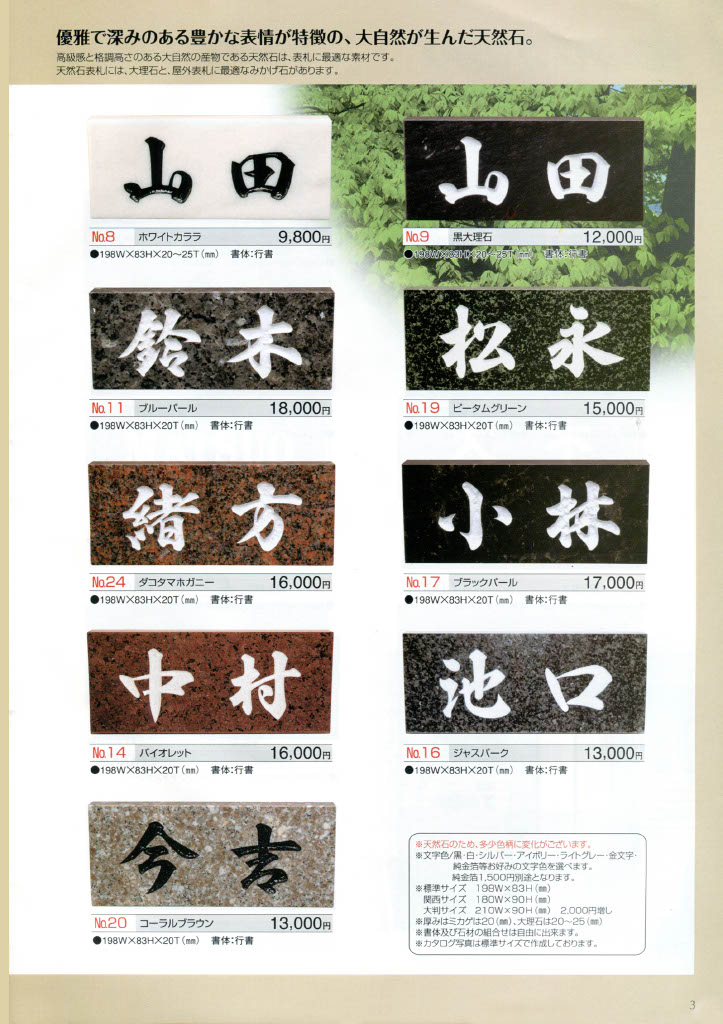 優雅で深みのある豊かな表情が特徴の、大自然が生んだ天然石。
高級感と格調高さのある大自然の産物である天然石は、表札に最適な素材です。
天然石表札には、大理石と、屋外表札に最適なみかげ石があります。
山田
No.8 ホワイトカララ 9,800円
●198W×83H×20〜25T(㎜) 書体:行書
山田
No.9 黒大理石 12,000円
●198W×83H×20〜25T(㎜) 書体:行書
鈴木
No.11 ブルーパール 18,000円
●198W×83H×20T(㎜) 書体:行書
松永
No.19 ピータムグリーン 15,000円
●198W×83H×20T(㎜) 書体:行書
緒方
No.24 ダコタマホガニー 16,000円
●198W×83H×20T(㎜) 書体:行書
小林
No.17 ブラックパール 17,000円
●198W×83H×20T(㎜) 書体:行書
中村
No.14 バイオレット 16,000円
●198W×83H×20T(㎜) 書体:行書
池口
No.16 ジャスパーク 13,000円
●198W×83H×20T(㎜) 書体:行書
今吉
No.20 コーラルブラウン 13,000円
●198W×83H×20T(㎜) 書体:行書
※天然石のため、多少色柄に変化がございます。
※文字色/黒・白・シルバー・アイボリー・ライトグレー・金文字・
純金箔等お好みの文字色を選べます。
純金箔1,500円別途となります。
※標準サイズ 198W×83H(㎜)
関西サイズ 180W×90H(㎜)
大判サイズ 210W×90H(㎜) 2,000円増し
※厚みはミカゲは20(㎜)、大理石は20〜25(㎜)
※書体及び石材の組合せは自由に出来ます。
※カタログ写真は標準サイズで作成しております。
3